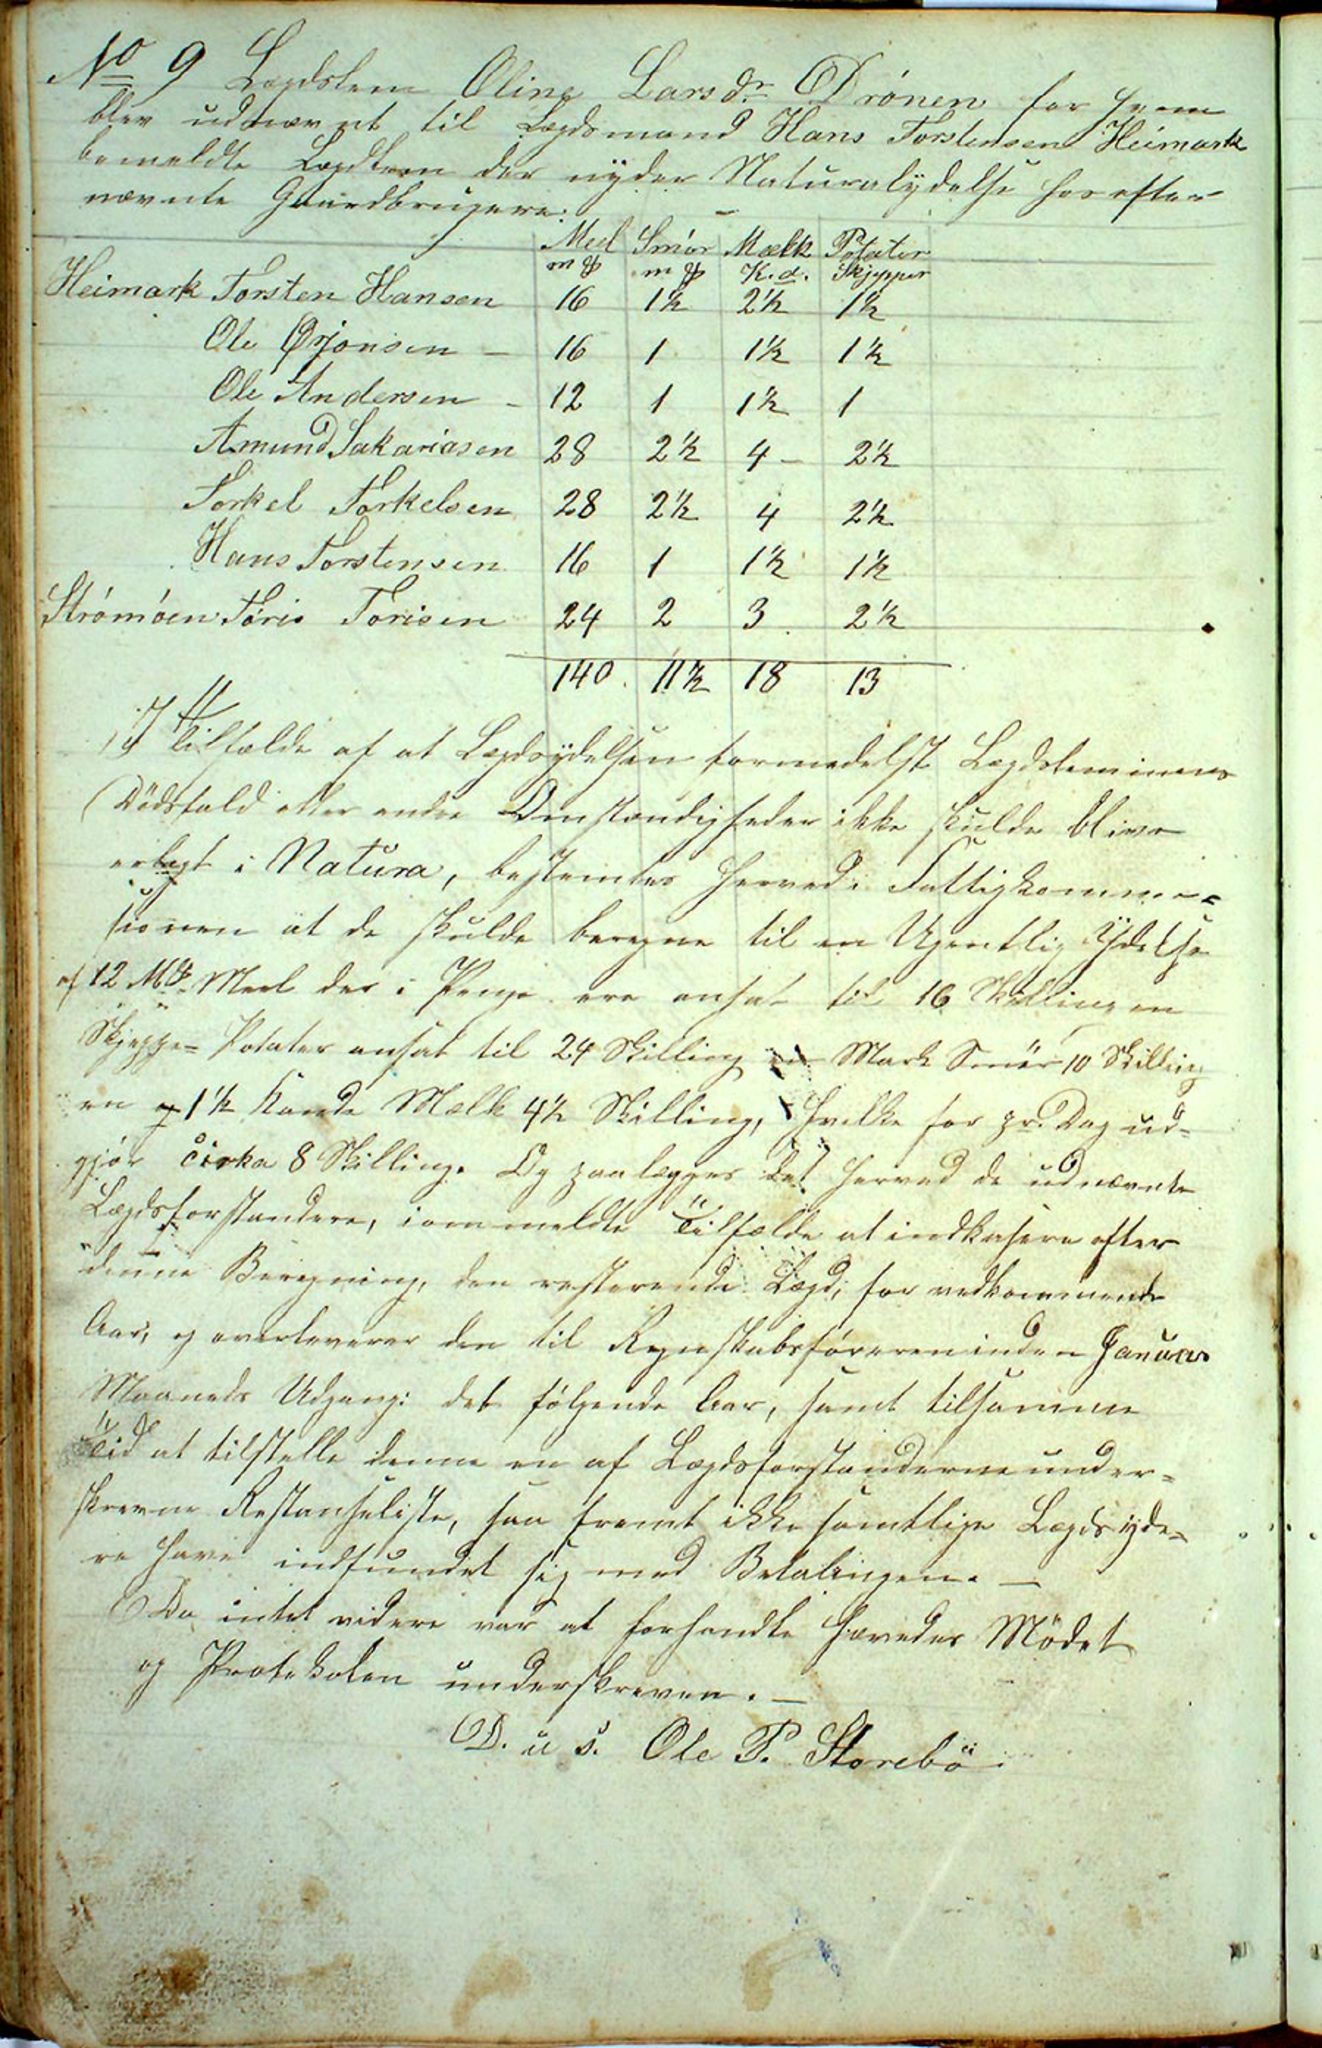 No 9 Lægdslem Oline Larsdr. Drønen for hvem
blev udnævnt til Lægdsmand Hans Torstensen Heimark
bemeldte Lægdlem der nyder Naturalydelse hos efter-
nævnte Gaardbrugere: -
Meel Smör Mælk Poteter
m ℔ m ℔ K.d. Skjepper
Heimark Torsten Hansen 16 1½ 2½ 1½
Ole Ørjansen - 16 1 1½ 1½
Ole Andersen - 12 1 1½ 1
Amund Sakariasen 28 2½ 4 - 2½
Torkel Torkelsen 28 2½ 4 2½
Hans Torstensen 16 1 1½ 1½
Strømøen Tøris Torisen 24 2 3 2½
140 11½ 18 13
I Tilfælde af at Lægdsydelsen formedelst Lægdslemmens
Dödsfald eller andre Omstændigheder ikke skulde blive
erlagt i Natura, bestemtes herved i Fattigkommis-
sionen at de skulde beregne til en Ugentlig Ydelse
af 12 M℔ Meel der i Penge ere ansat til 16 Skilling en
Skjeppe Potater ansat til 24 Skilling en Mark Smör 10 Skilling
en og 1½ Kande Mælk 4½ Skilling, hvilke for pr. Dag ud-
gjör Cirka 8 Skilling. Og paalægges det herved de udnævnte
Lægdsforstandere, i ommeldte Tilfælde at indkasere efter
denne Beregning, den resterende Lægd, for vedkommende
Aar, og overleverer den til Regnskabsføreren inden Januar
Maaneds Udgang i det følgende Aar, samt til samme
Tid at tilstelle denne en af Lægdsforstanderne under-
skrevne Restanseliste, saa fremt ikke samtlige Lægdsyde-
re have indfundet sig med Betalingen. -
Da intet videre var at forhandle hævedes Mödet
og Protokolen underskreven. -
D. u s. Ole P. Storebö